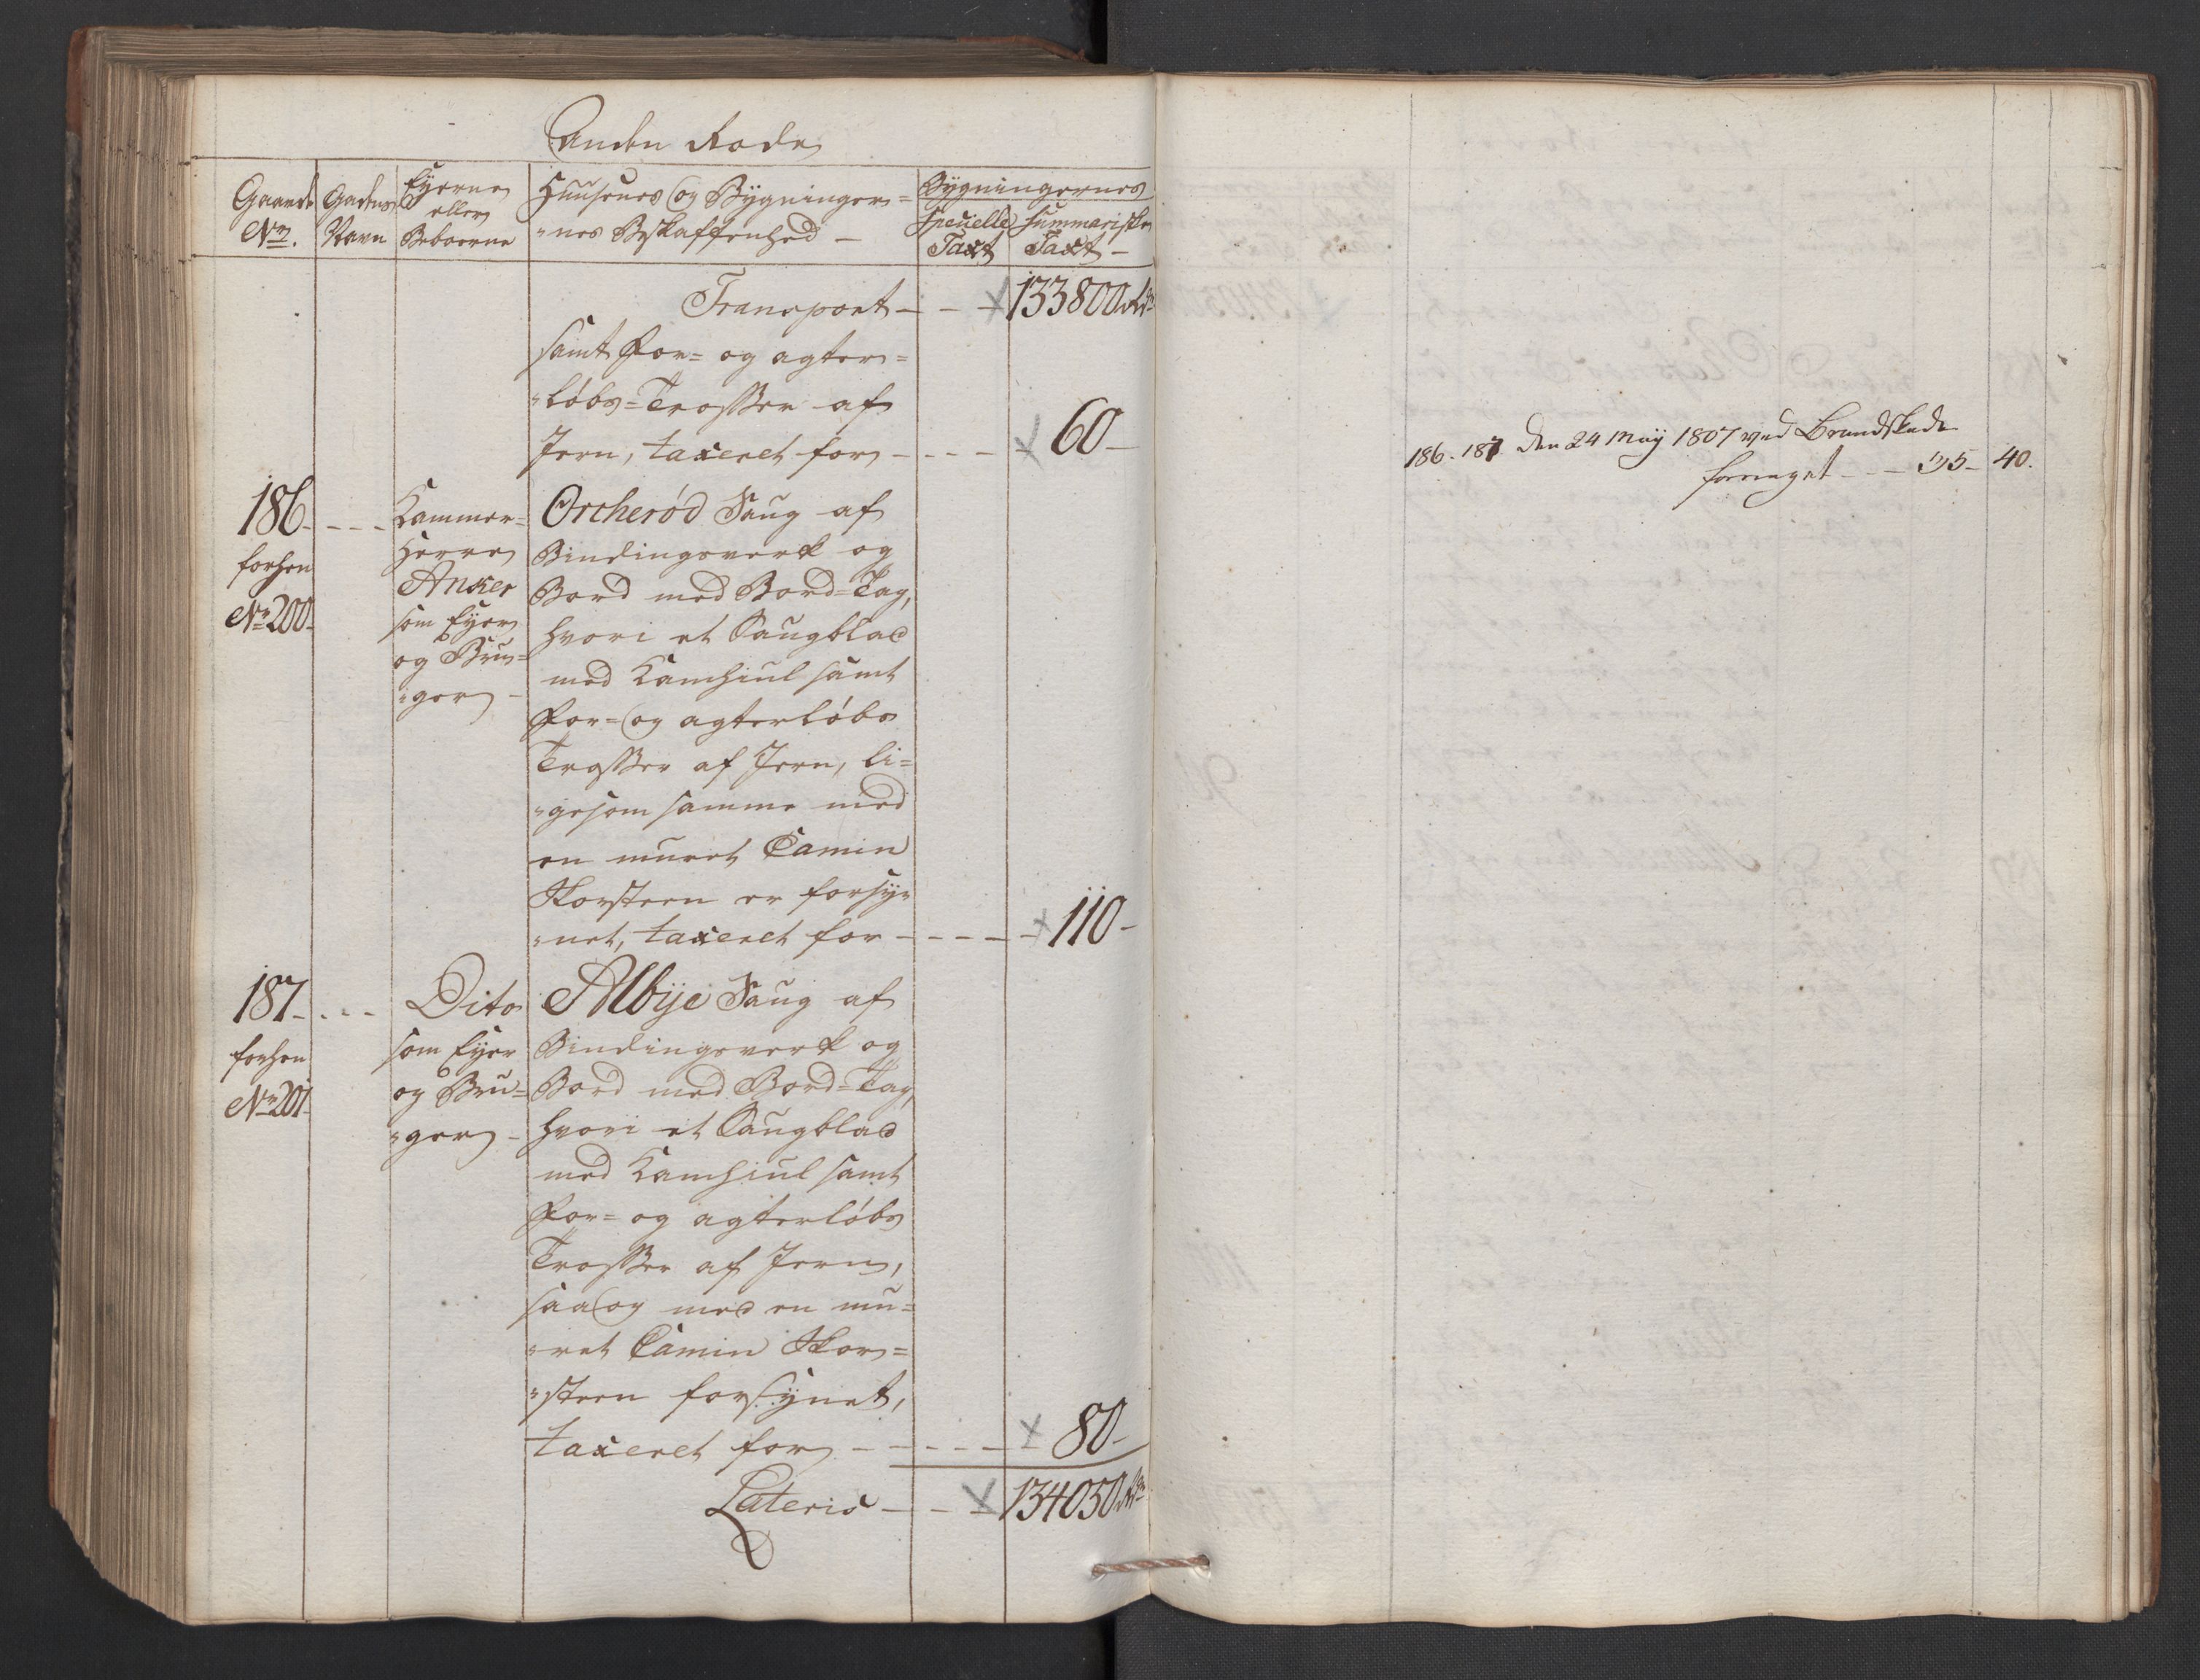 Anden Rode
Gaards No.
Gadens Navn
Eyerne eller Beboerne
Huusenes og Bygninger=
"nes Beskaffenhed —
Bygningernes
Specielle Taxt
Summariske Taxt —
Transport — — — 133800 Rdr
samt For= og agter=
"løbs=Trosser af
Jern, taxeret for — — — — 60 —
186 — — —
forhen
No 200.
Kammer=
Herre
Anker
som Eyer
og Bru=
"ger —
Orcherød Saug af
Bindingsverk og
Bord med Bord=Tag,
hvori et Saugblad
med Kamhiul samt
For= og agterløbs
Trosser af Jern, li=
"gesom samme med
en muret Camin
Skorsteen er forsy=
"net, taxeret for — — — — 110 —
187 — — —
forhen
No 201
Dito
som Eyer
og Bru=
"ger —
Albye Saug af
Bindingsverk og
Bord med Bord=Tag,
hvori et Saugblad
med Kamhiul samt
For= og agterløbs
Trosser af Jern,
saa og med en mu=
"ret Camin Skor=
"steen forsynet,
taxeret for — — — — 80 —
Lateris — — — 134050 Rdr
186. 187 den 24 May 1807 ved Brandskade
40.